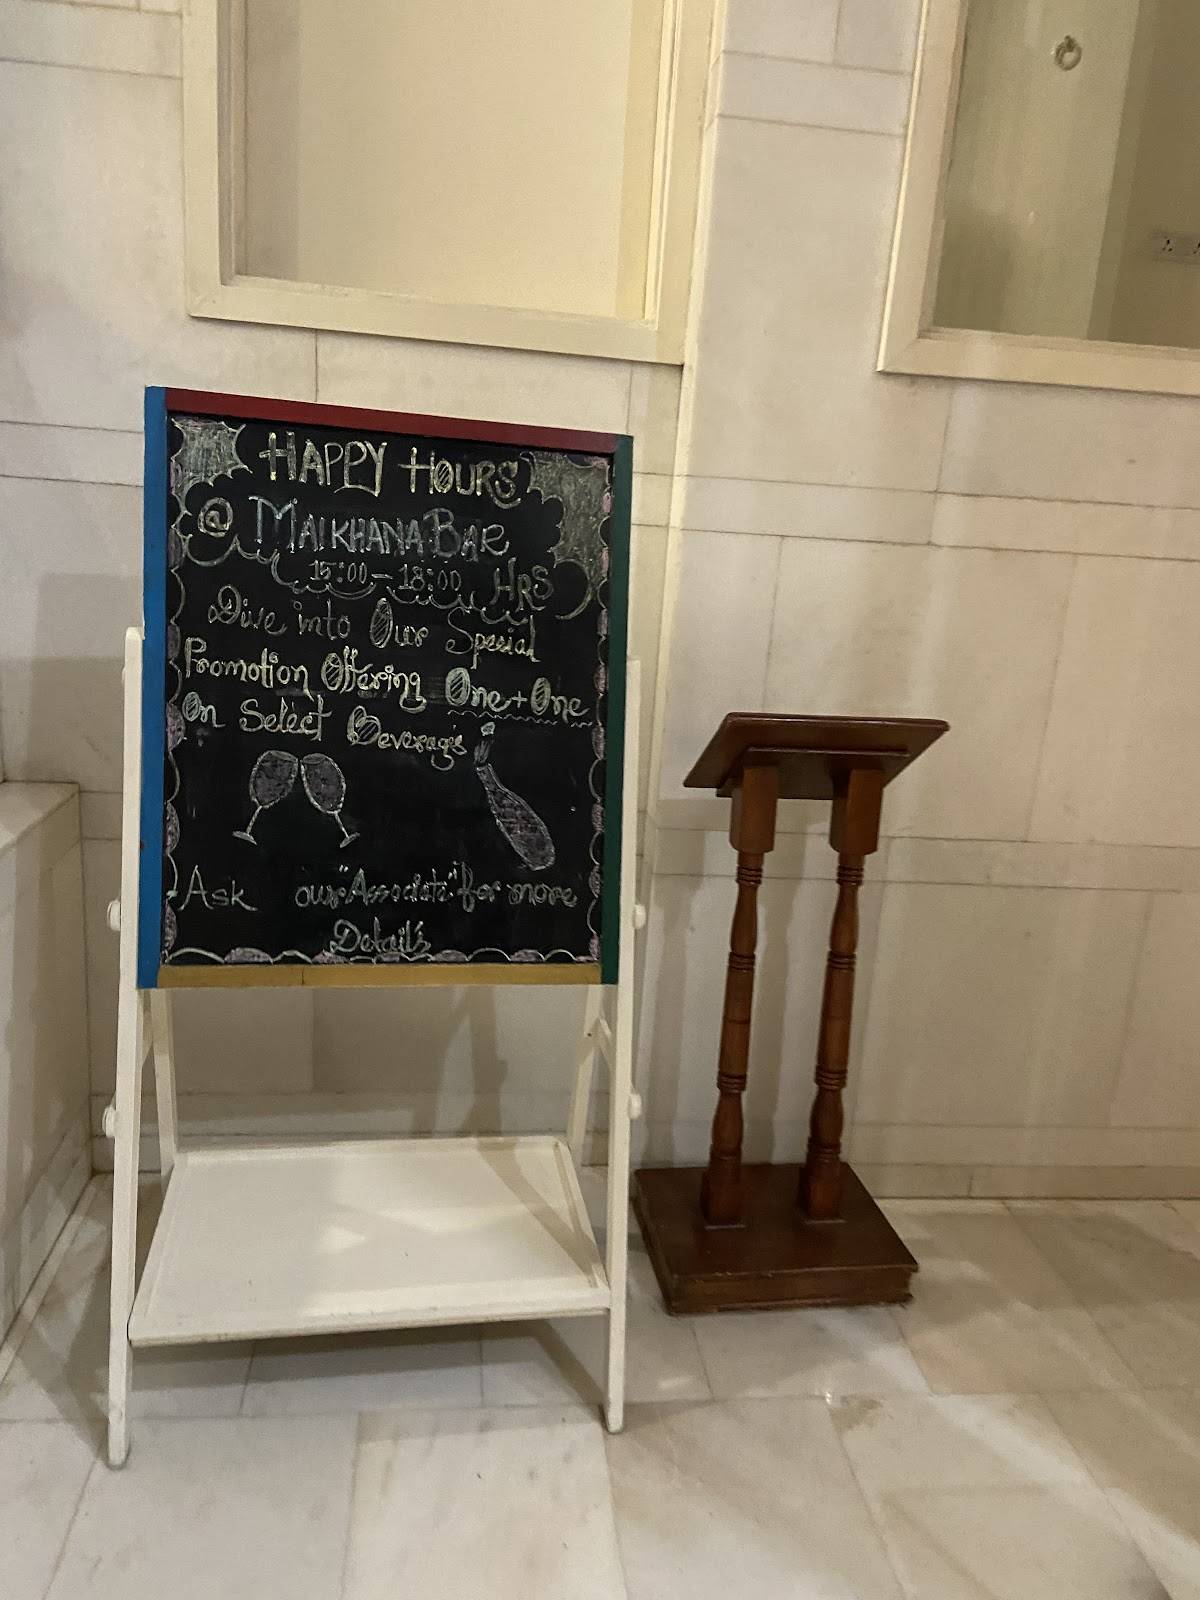 HAPPY HOURS
@ MAIKHANA BAR
15:00 - 18:00 HRS
Dive into Our Special
Promotion Offering One + One
On Select Beverages
Ask our "Associate" for more
Detail's